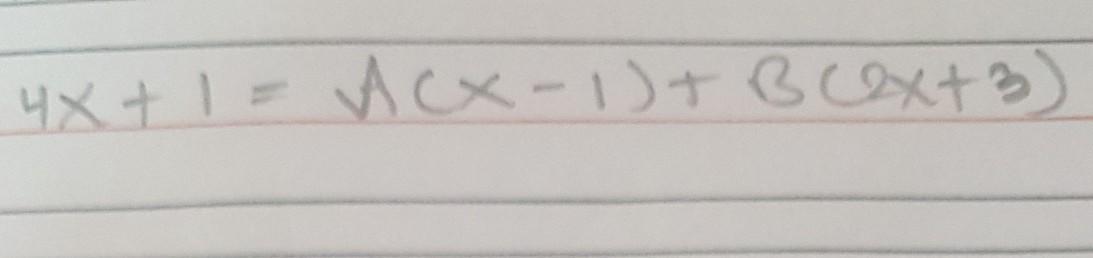 4x + 1 = A(x - 1) + B(2x + 3)